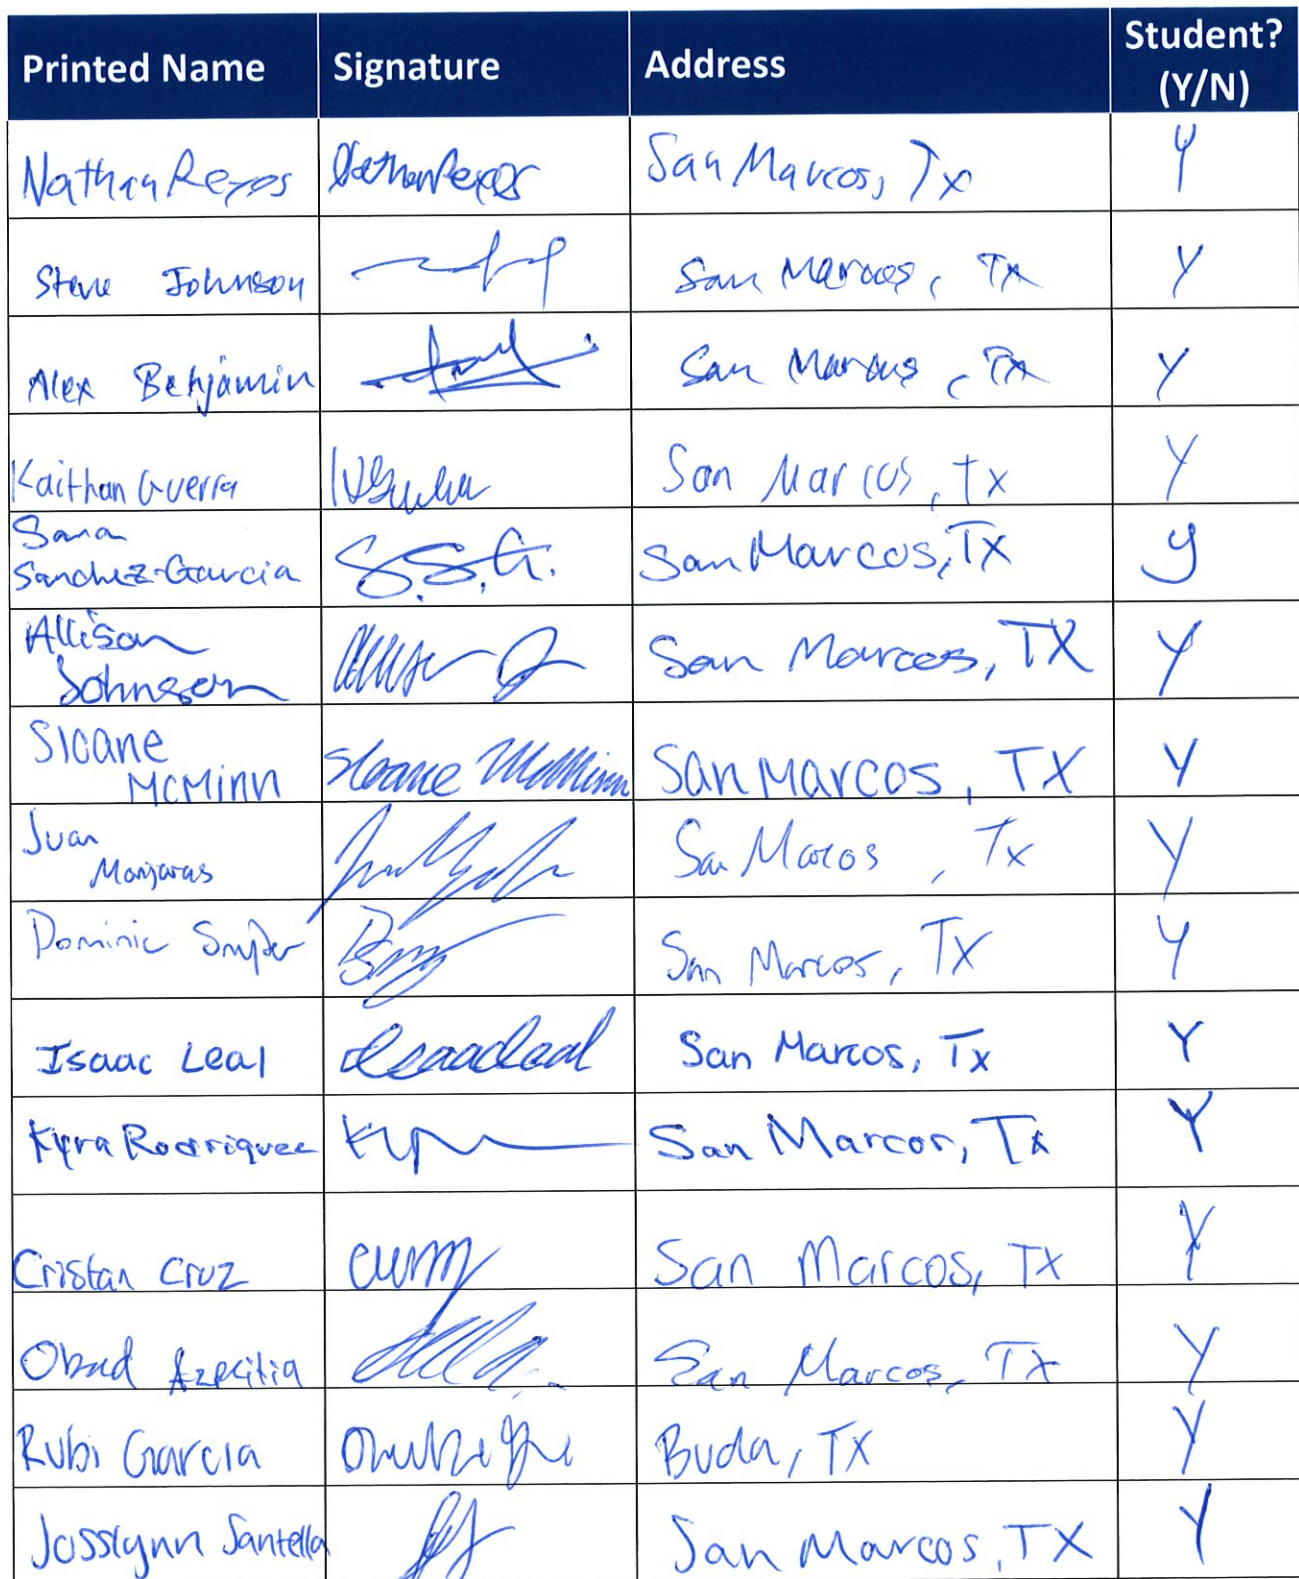 Printed Name Signature Address Student? (Y/N)
Nathan Reyes Nathan Reyes San Marcos, Tx Y
Steve Johnson San Marcos, TX Y
Alex Benjamin San Marcos, TX Y
Kaithan Guerra San Marcos, Tx Y
Sara
Sanchez-Garcia S.S.G. San Marcos, TX y
Allison
Johnson San Marcos, TX Y
Sloane
McMinn Sloane McMinn San Marcos, TX Y
Juan
Manjaras San Marcos, Tx Y
Dominic Snyder San Marcos, TX Y
Isaac Leal Isaac Leal San Marcos, Tx Y
Kyra Rodriguez San Marcos, Tx Y
Cristan Cruz San Marcos, TX Y
Obed Azpeitia San Marcos, TX Y
Rubi Garcia Buda, TX Y
Josslynn Santella San Marcos, TX Y